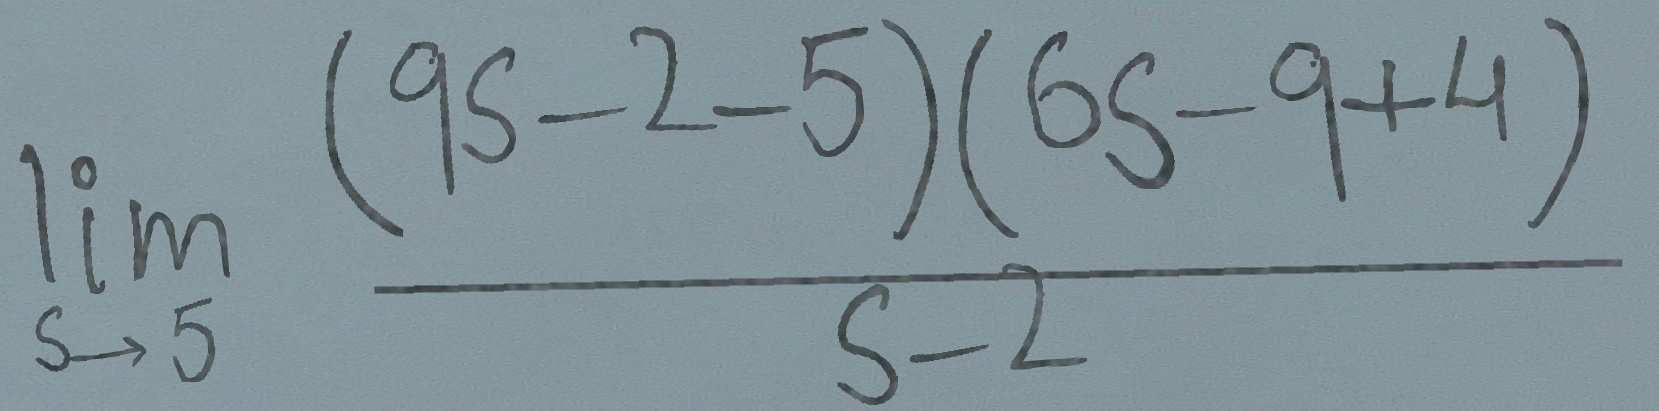 lim s→5 (9s-2-5)(6s-9+4) / s-2